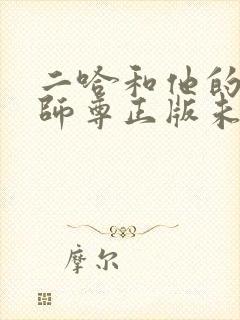 二哈和他的
師尊正版未
摩尔